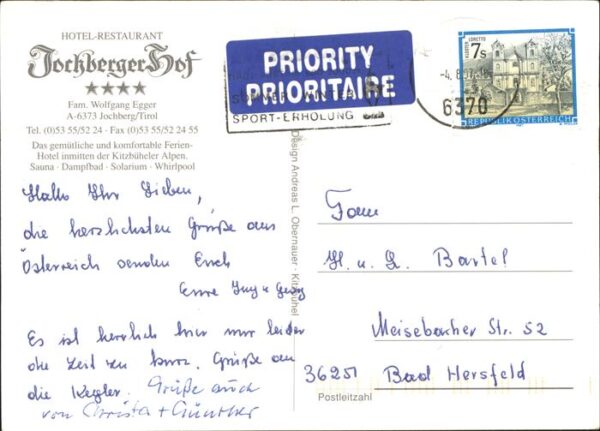 HOTEL-RESTAURANT
Jochberger Hof
Fam. Wolfgang Egger
A-6373 Jochberg/Tirol
Tel. (0)53 55/52 24 · Fax (0)53 55/52 24 55
Das gemütliche und komfortable Ferien-
Hotel inmitten der Kitzbüheler Alpen.
Sauna · Dampfbad · Solarium · Whirlpool
Hallo Ihr Lieben,
die herzlichsten Grüße aus
Österreich senden Euch
Eure Inge u Georg
Es ist herrlich hier nur leider
die Zeit zu kurz. Grüße an
die Kegler. Grüße auch
von Christa + Günther
Design Andreas L. Obernauer · Kitzbühel
PRIORITY
PRIORITAIRE
SPORT-ERHOLUNG
6370
7s
LORETTO
REPUBLIK ÖSTERREICH
Fam
H. u. L. Bartel
Meisebacher Str. 52
36251 Bad Hersfeld
Postleitzahl